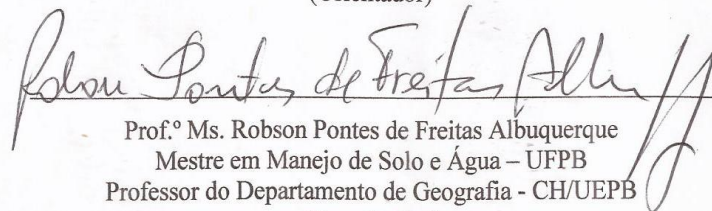 (Orientador)
Robson Pontes de Freitas Albuq
Prof.º Ms. Robson Pontes de Freitas Albuquerque
Mestre em Manejo de Solo e Água – UFPB
Professor do Departamento de Geografia - CH/UEPB